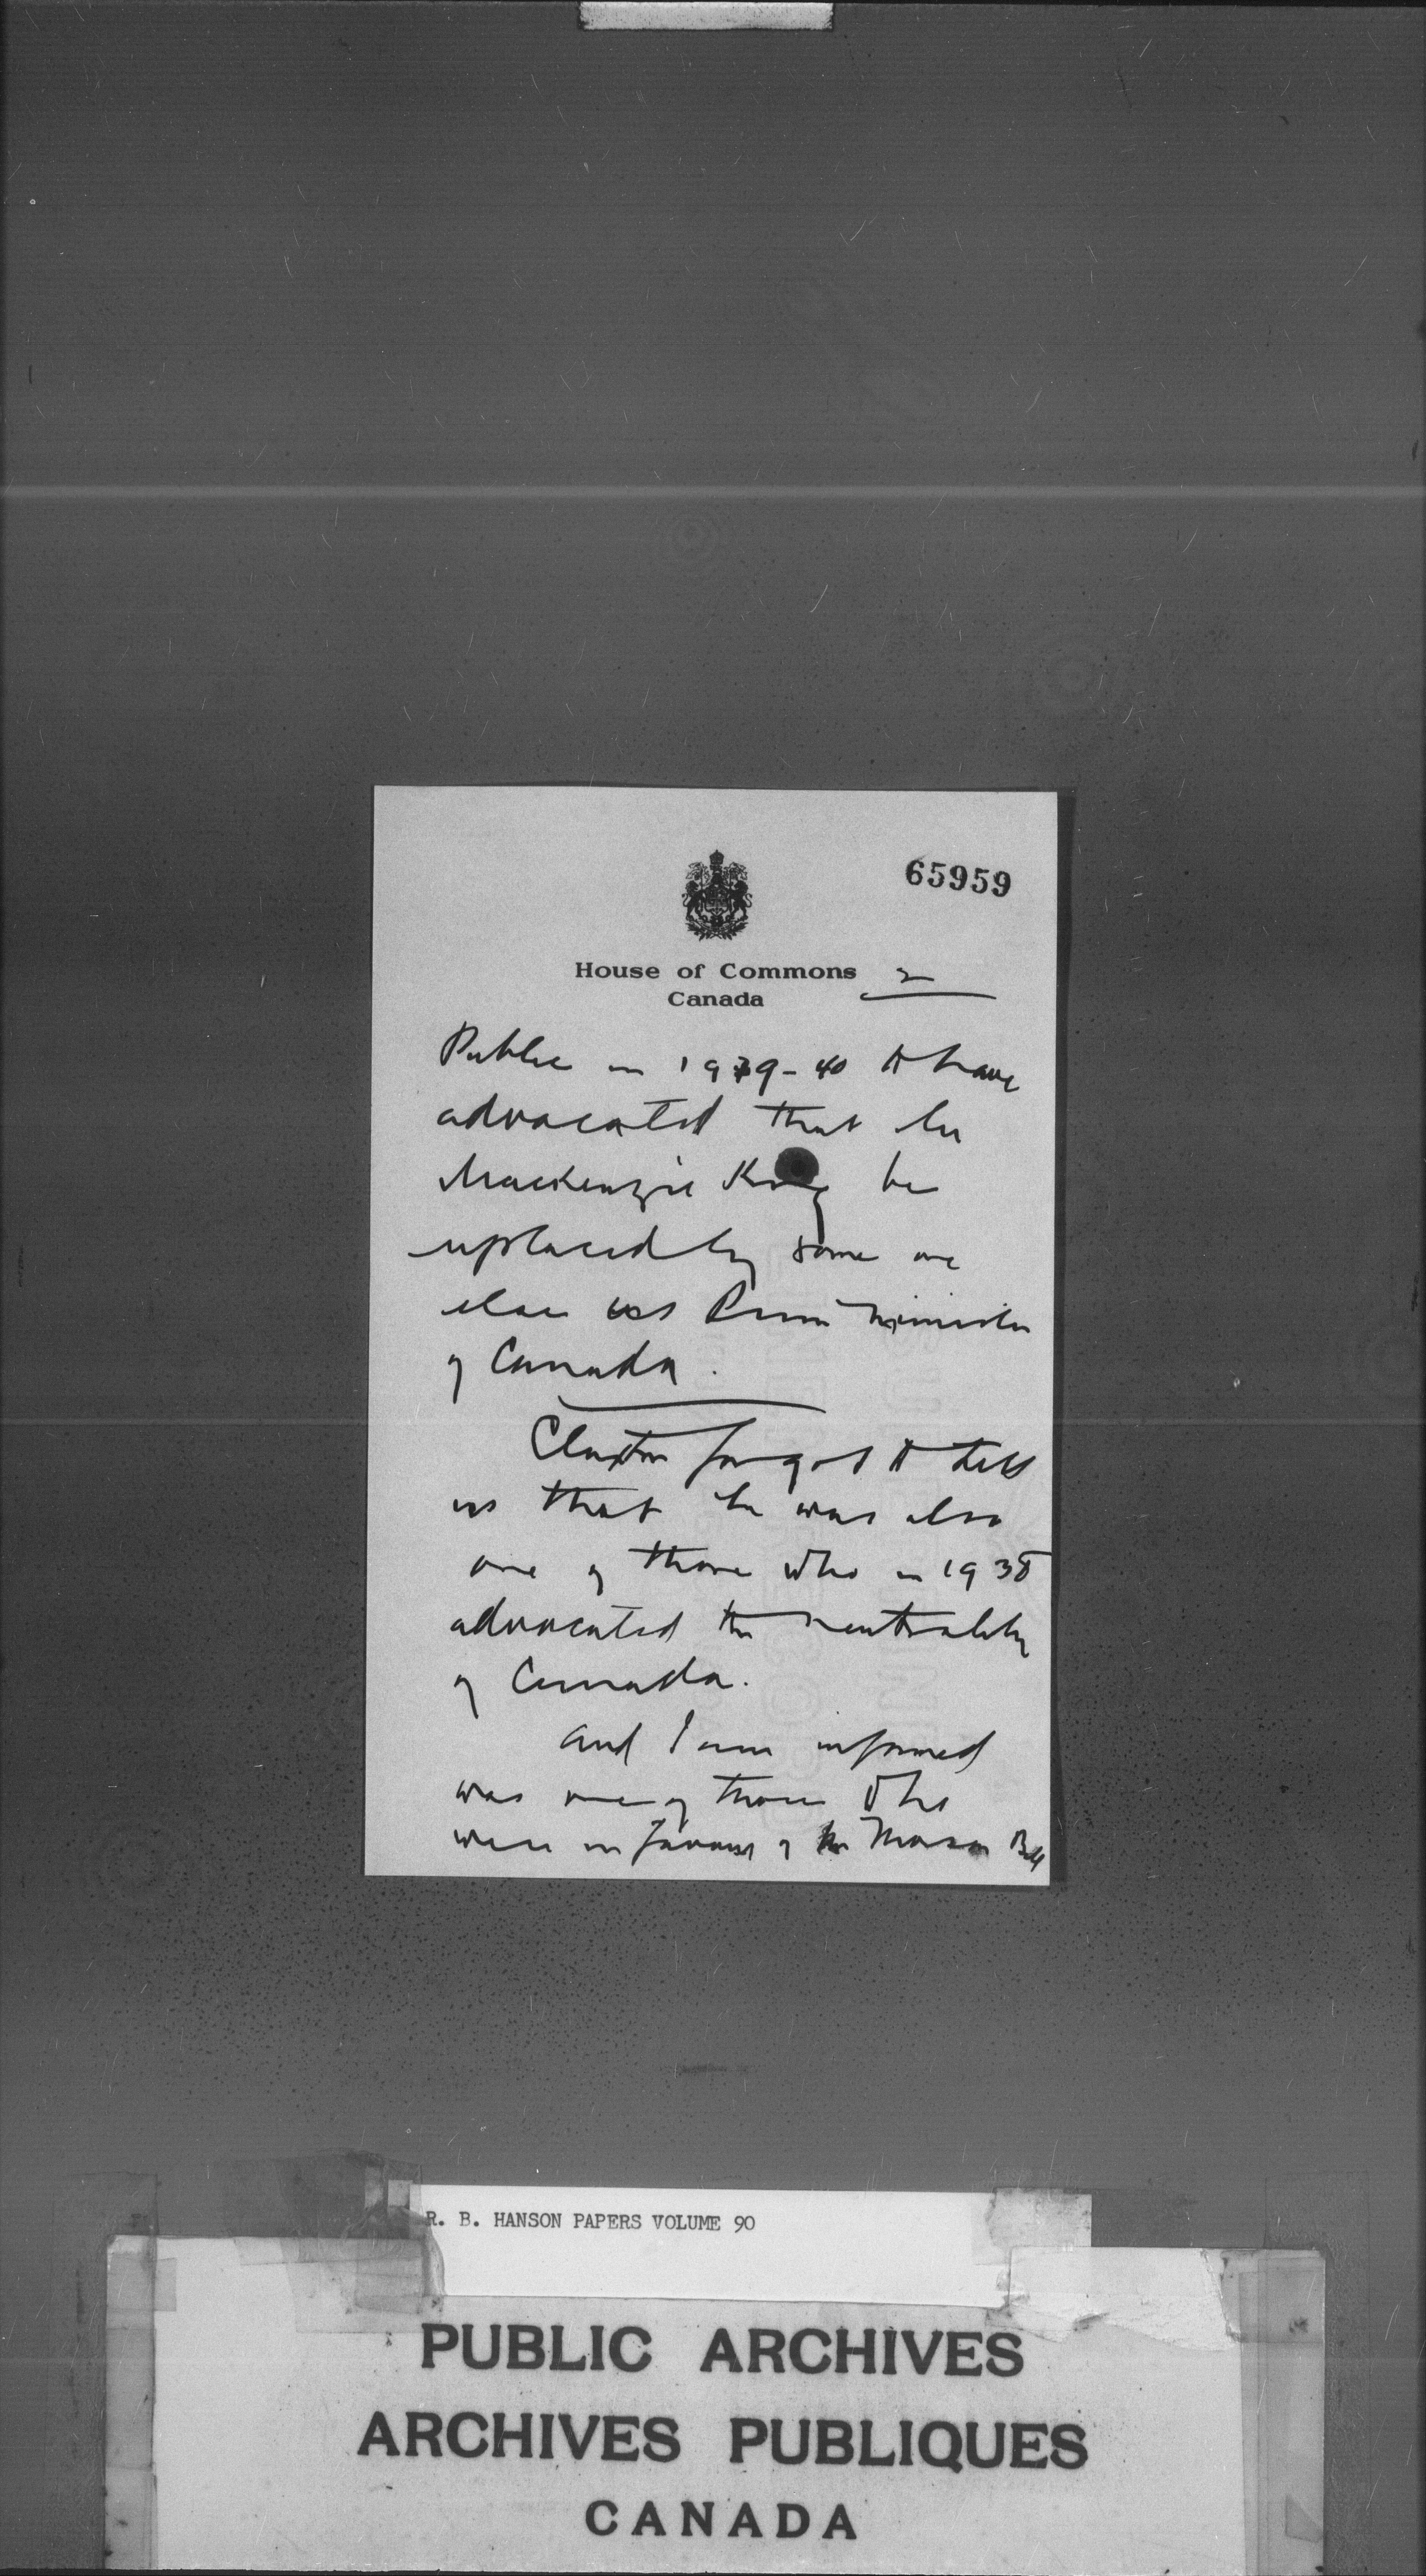 65959
House of Commons 2
Canada
Public in 1939-40 to have
advocated that Mr
Mackenzie King be
replaced by some one
else as Prime Minister
of Canada.
Claxton forgot to tell
us that he was also
one of those who in 1938
advocated the neutrality
of Canada.
and I am informed
was one of those who
were in favour of the
R. B. HANSON PAPERS VOLUME 90
PUBLIC ARCHIVES
ARCHIVES PUBLIQUES
CANADA